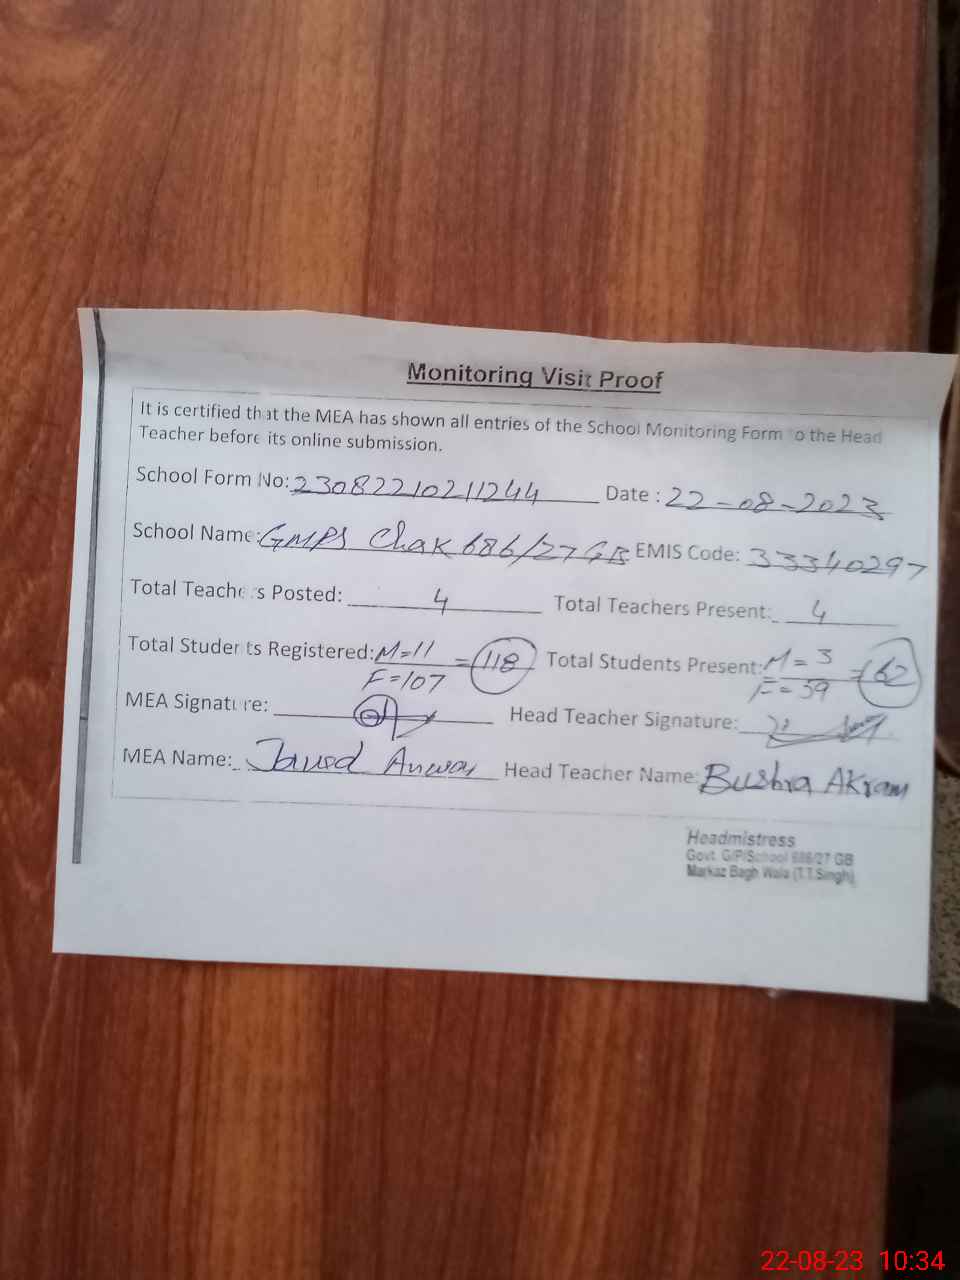 Monitoring Visit Proof
It is certified that the MEA has shown all entries of the School Monitoring Form to the Head
Teacher before its online submission.
School Form No: 23082210211244 Date : 22-08-2023
School Name: GMPS Chak 686/27 GB EMIS Code: 33340297
Total Teachers Posted: 4 Total Teachers Present: 4
Total Students Registered: M=11 = 118 Total Students Present: M=3 = 62
F=107 F=59
MEA Signature: Head Teacher Signature:
MEA Name: Javed Anwar Head Teacher Name: Bushra Akram
Headmistress
Govt. G/P/School 686/27 GB
Markaz Bagh Wala (T.T.Singh)
22-08-23 10:34